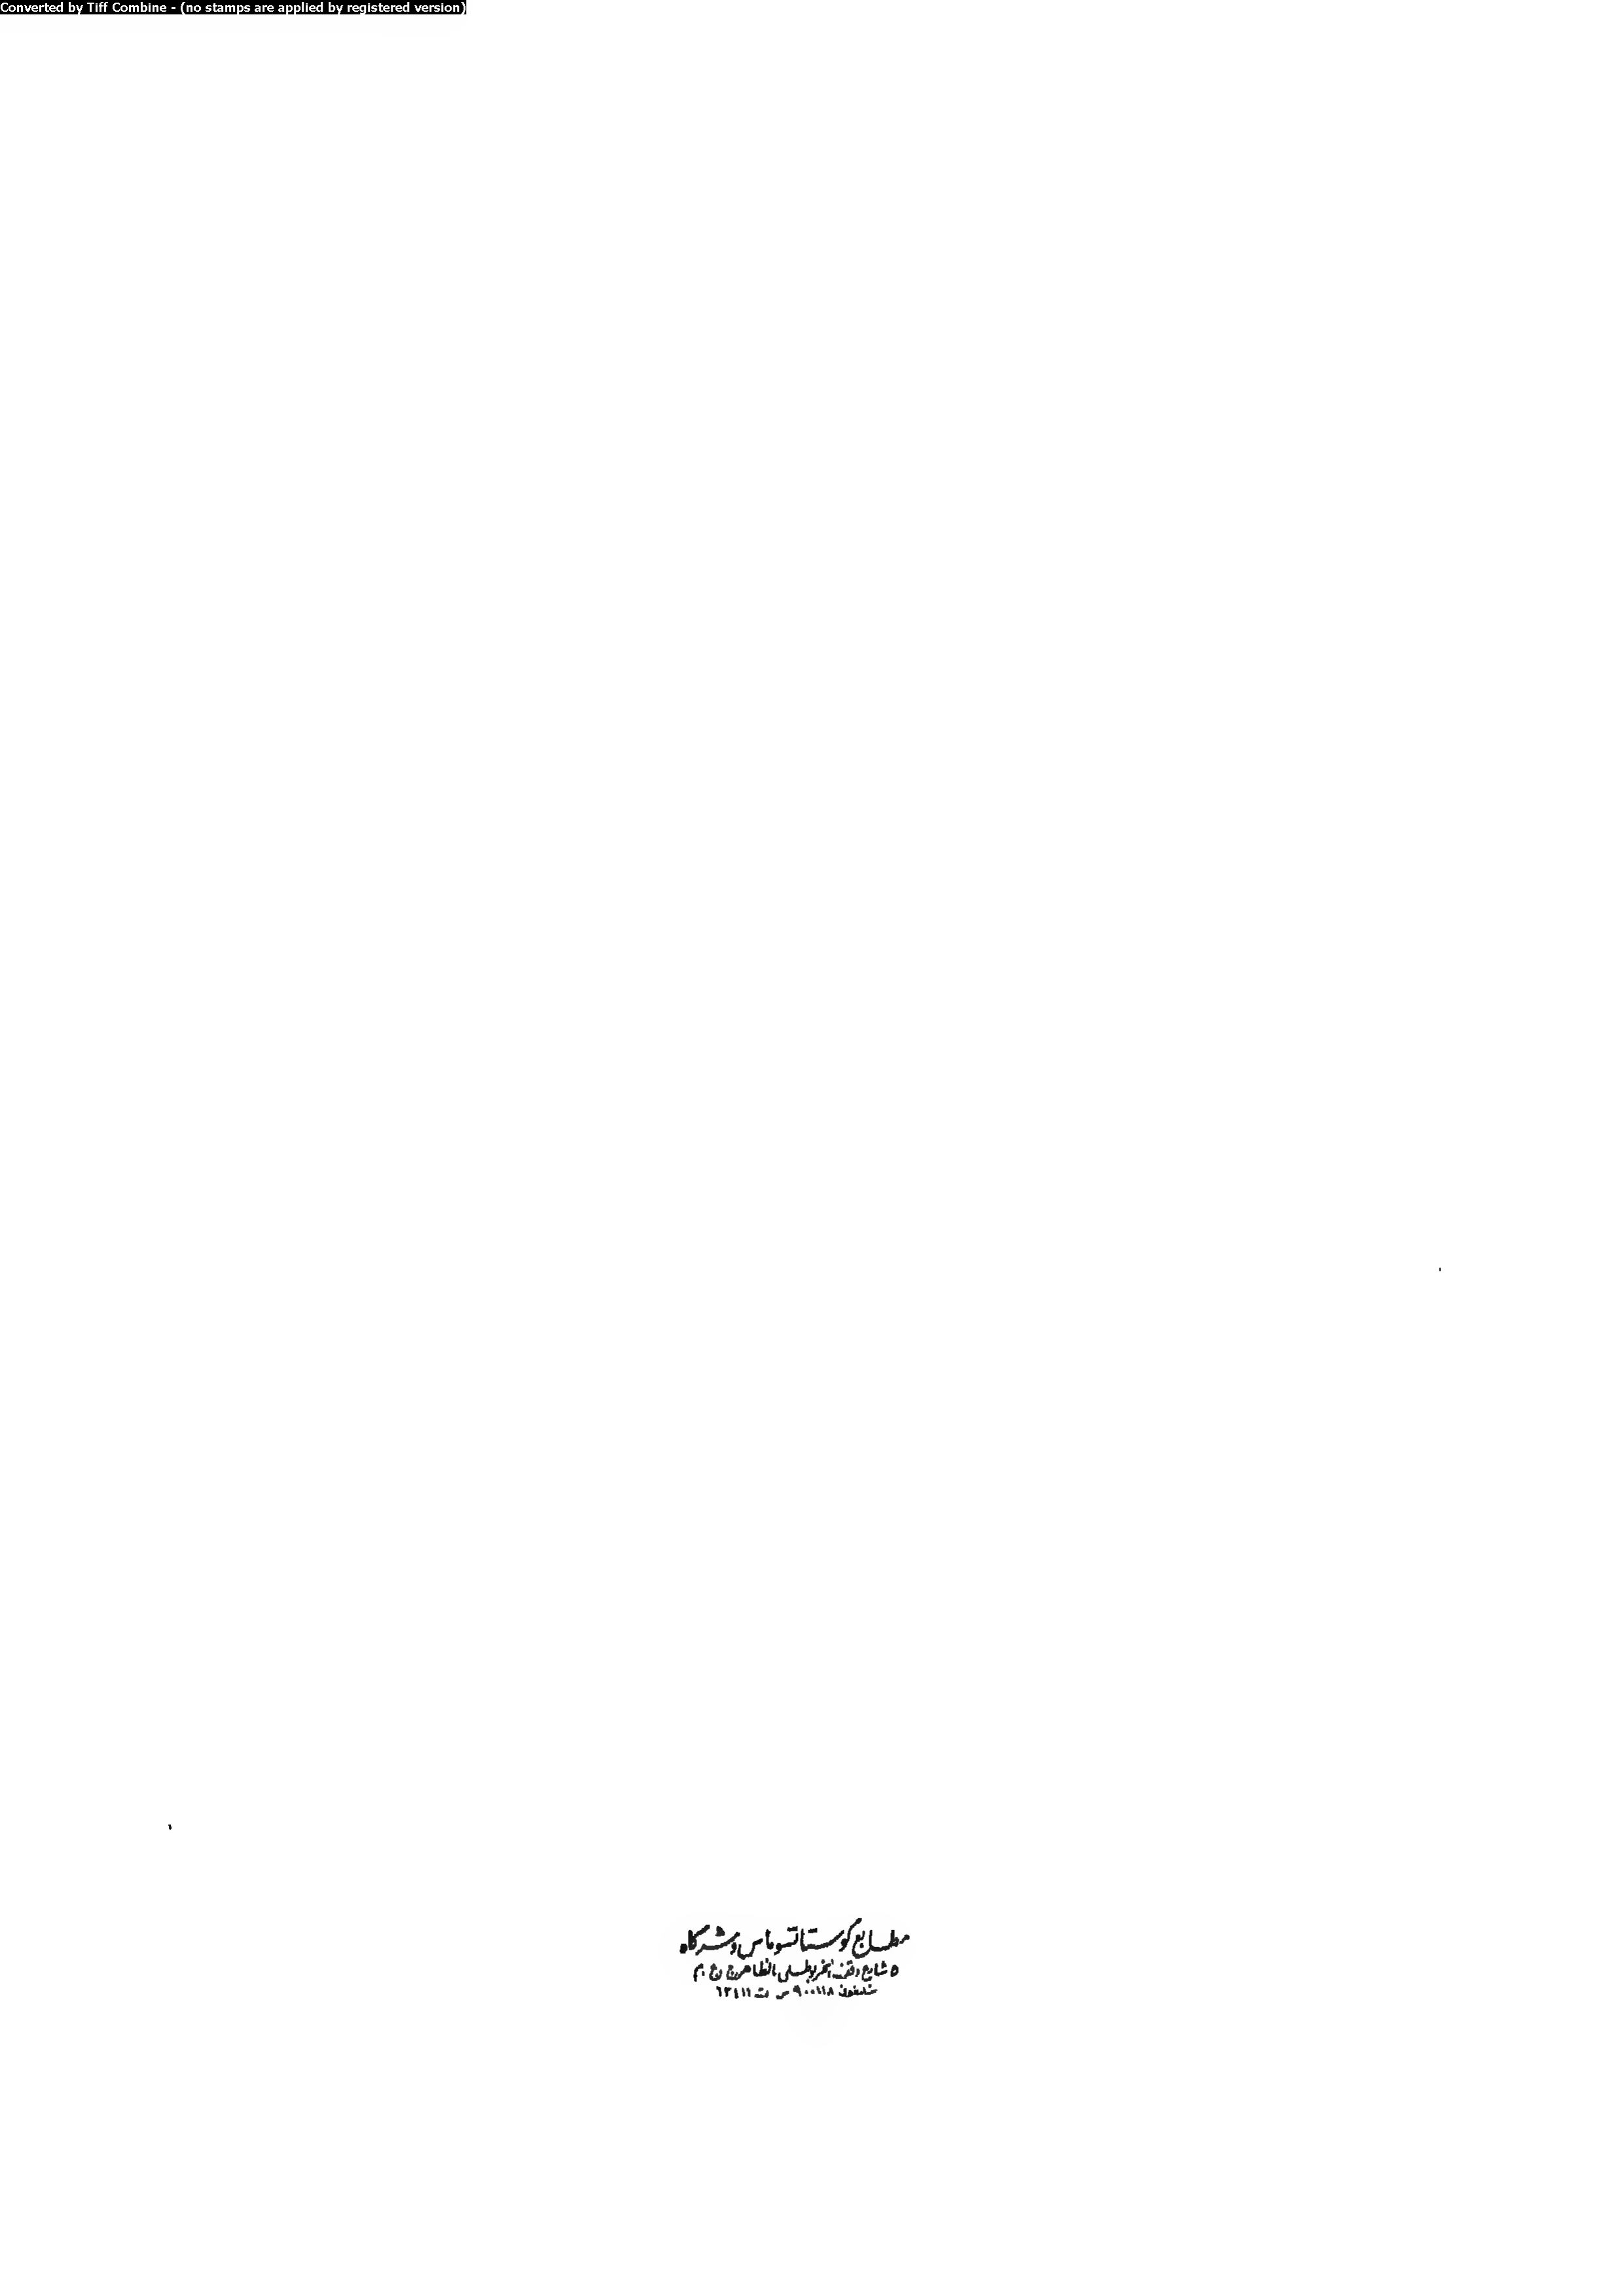 Converted by Tiff Combine - (no stamps are applied by registered version)
مطابع كوستاتسوماس وشركاه
٥ شارع وقف الخربوطلى بالظاهر ج ع . م
تليفون ٩٠٠١١٨ س ت